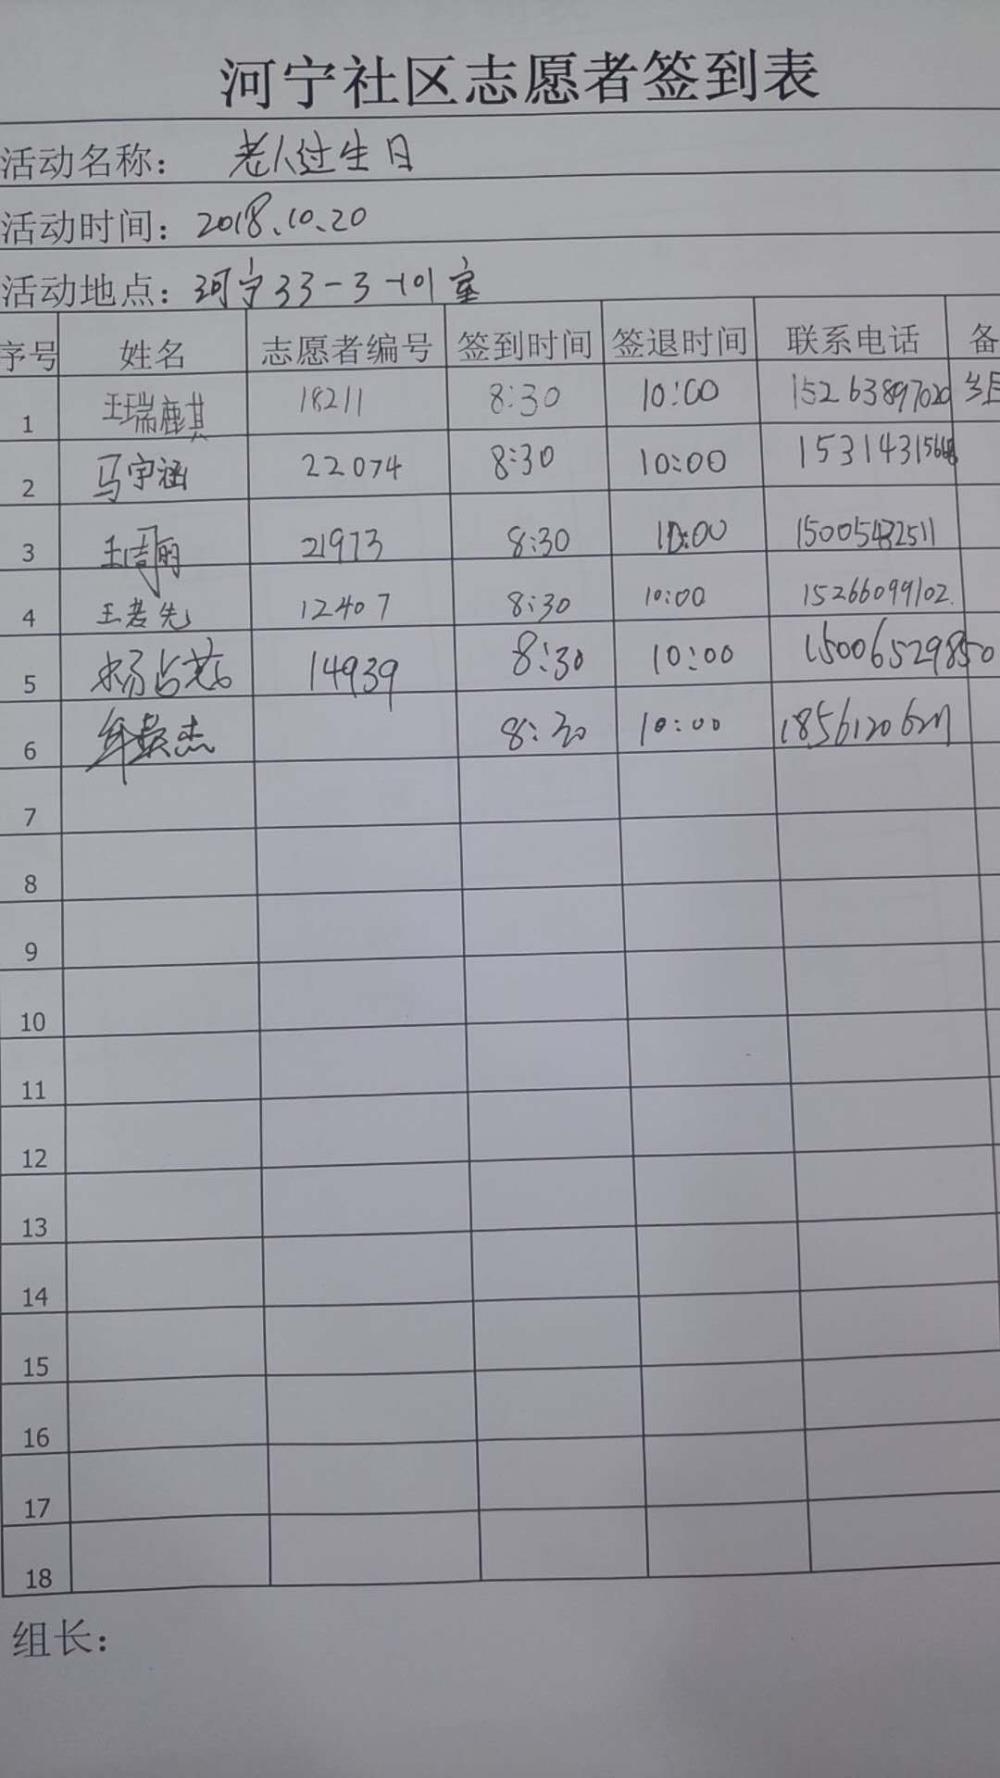 河宁社区志愿者签到表
活动名称： 老人过生日
活动时间：2018.10.20
活动地点：河宁33-3-101室
序号 姓名 志愿者编号 签到时间 签退时间 联系电话 备
1 王瑞麒 18211 8:30 10:00 15263897020 组
2 马宇涵 22074 8:30 10:00
3 21973 8:30 10:00 15005432511
4 王若先 12407 8:30 10:00 15266099102.
5 杨占芯 14939 8:30 10:00 15006529850
6 8:30 10:00
7
8
9
10
11
12
13
14
15
16
17
18
组长：